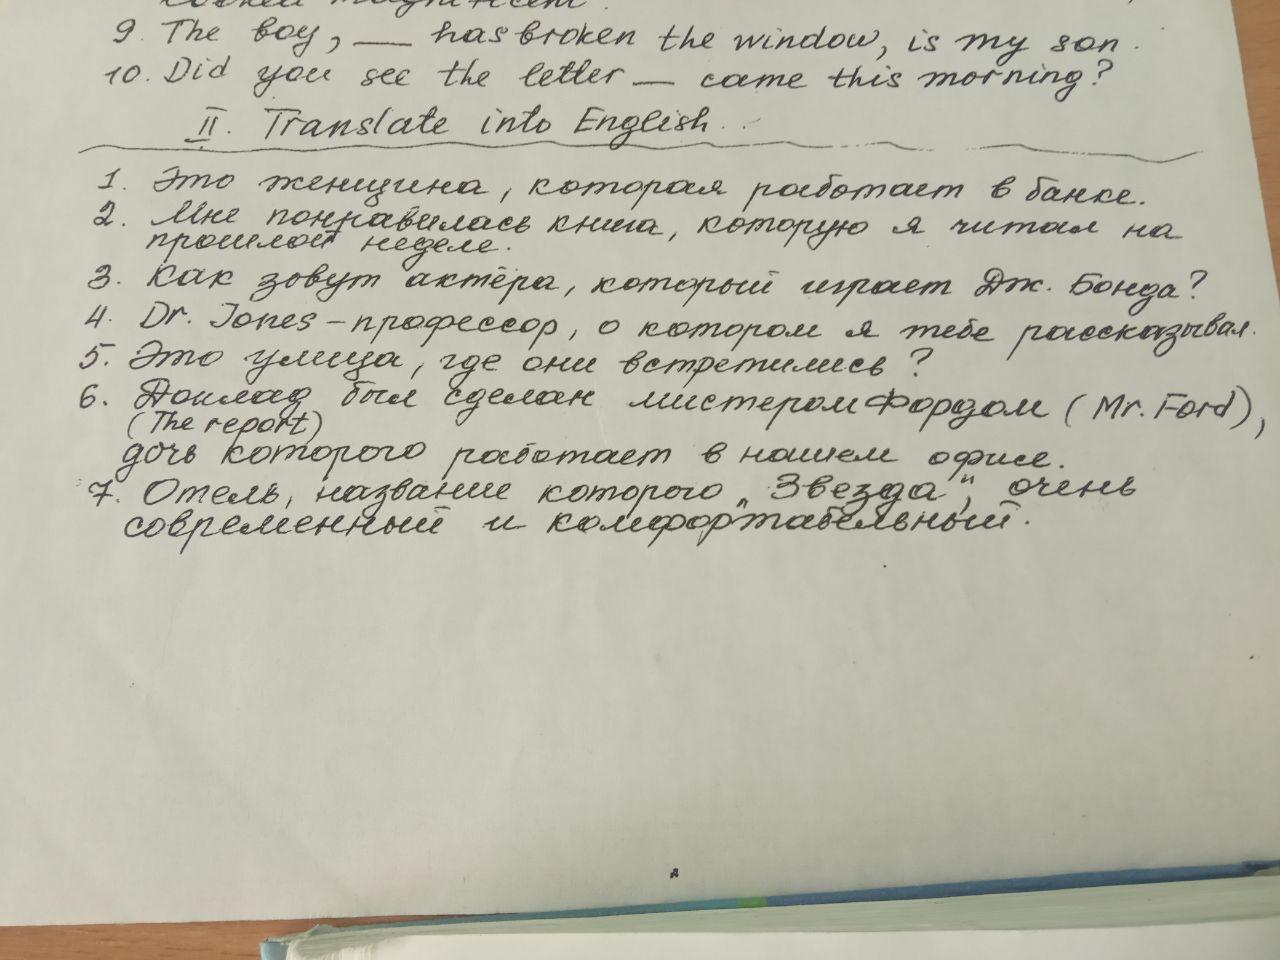 looked magnificent.
9. The boy, __ has broken the window, is my son.
10. Did you see the letter __ came this morning?
II. Translate into English.
1. Это женщина, которая работает в банке.
2. Мне понравилась книга, которую я читал на
прошлой неделе.
3. Как зовут актёра, который играет Дж. Бонда?
4. Dr. Jones – профессор, о котором я тебе рассказывал.
5. Это улица, где они встретились?
6. Доклад был сделан мистером Фордом (Mr. Ford),
(The report)
дочь которого работает в нашем офисе.
7. Отель, название которого „Звезда", очень
современный и комфортабельный.